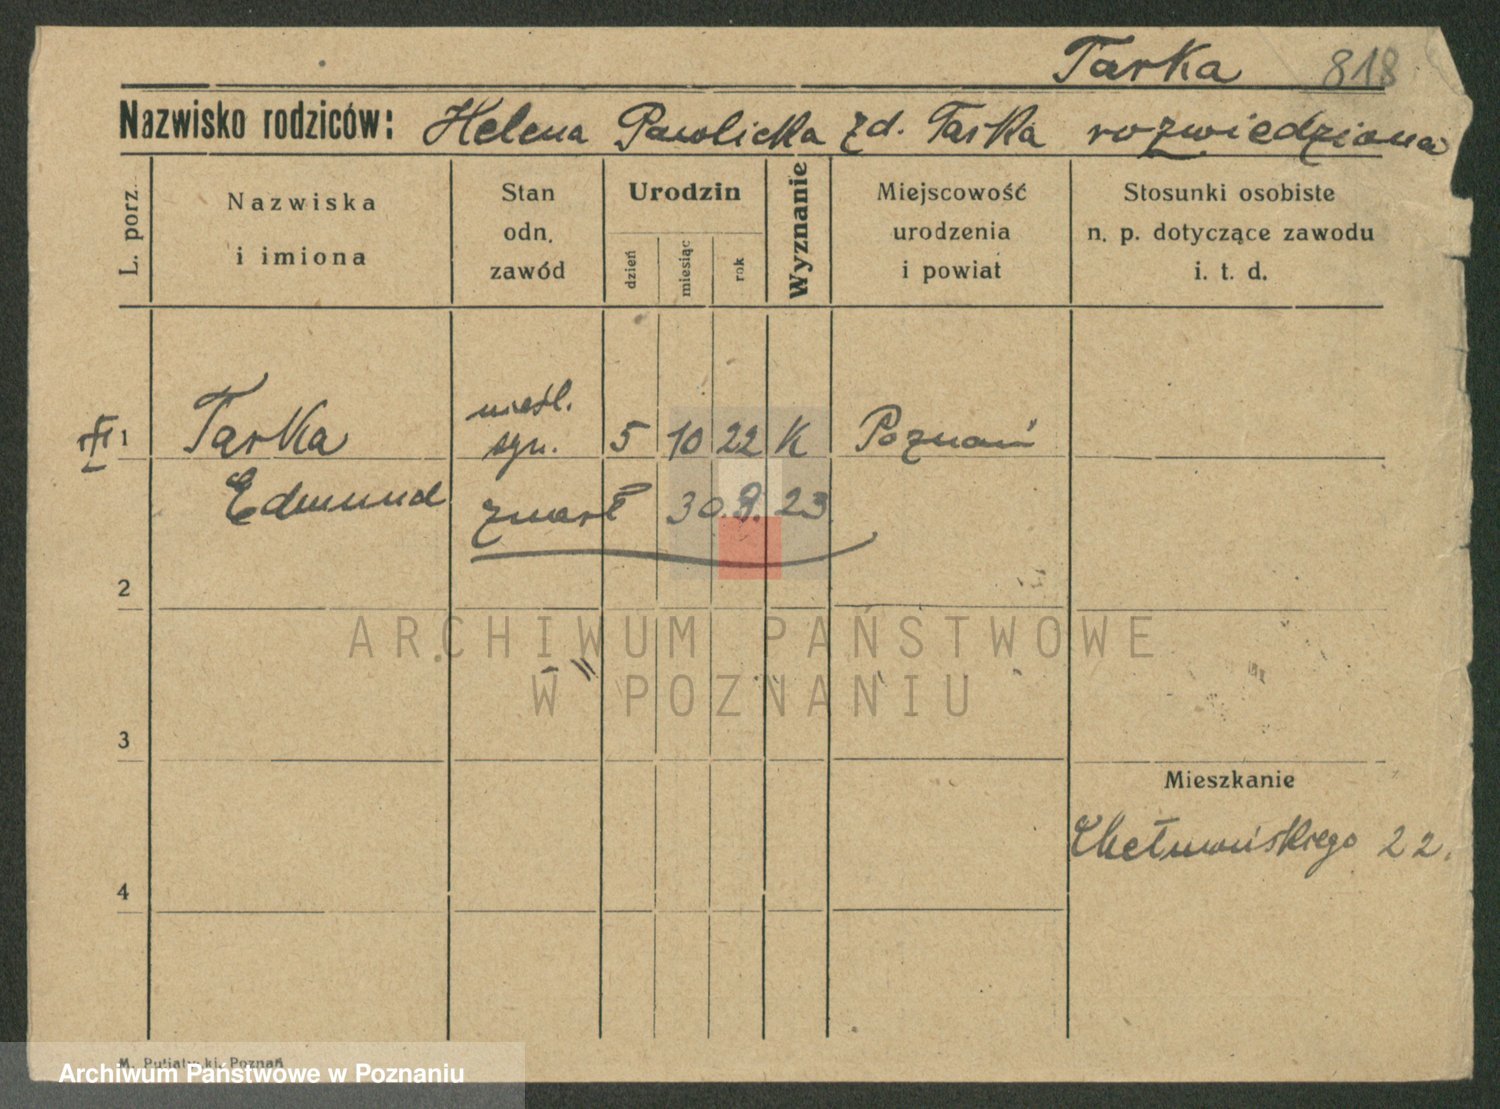 Tarka 818
Nazwisko rodziców: Helena Pawlicka zd. Tarka rozwiedziona
L. porz.
Nazwiska
i imiona
Stan
odn.
zawód
Urodzin
dzień
miesiąc
rok
Wyznanie
Miejscowość
urodzenia
i powiat
Stosunki osobiste
n. p. dotyczące zawodu
i. t. d.
1 Tarka nieśl. syn. 5 10 22 K Poznań
Edmund zmarł 30.9. 23
2
3
4
Mieszkanie
Chełmońskiego 22.
ARCHIWUM PAŃSTWOWE
W POZNANIU
Poznań
Archiwum Państwowe w Poznaniu